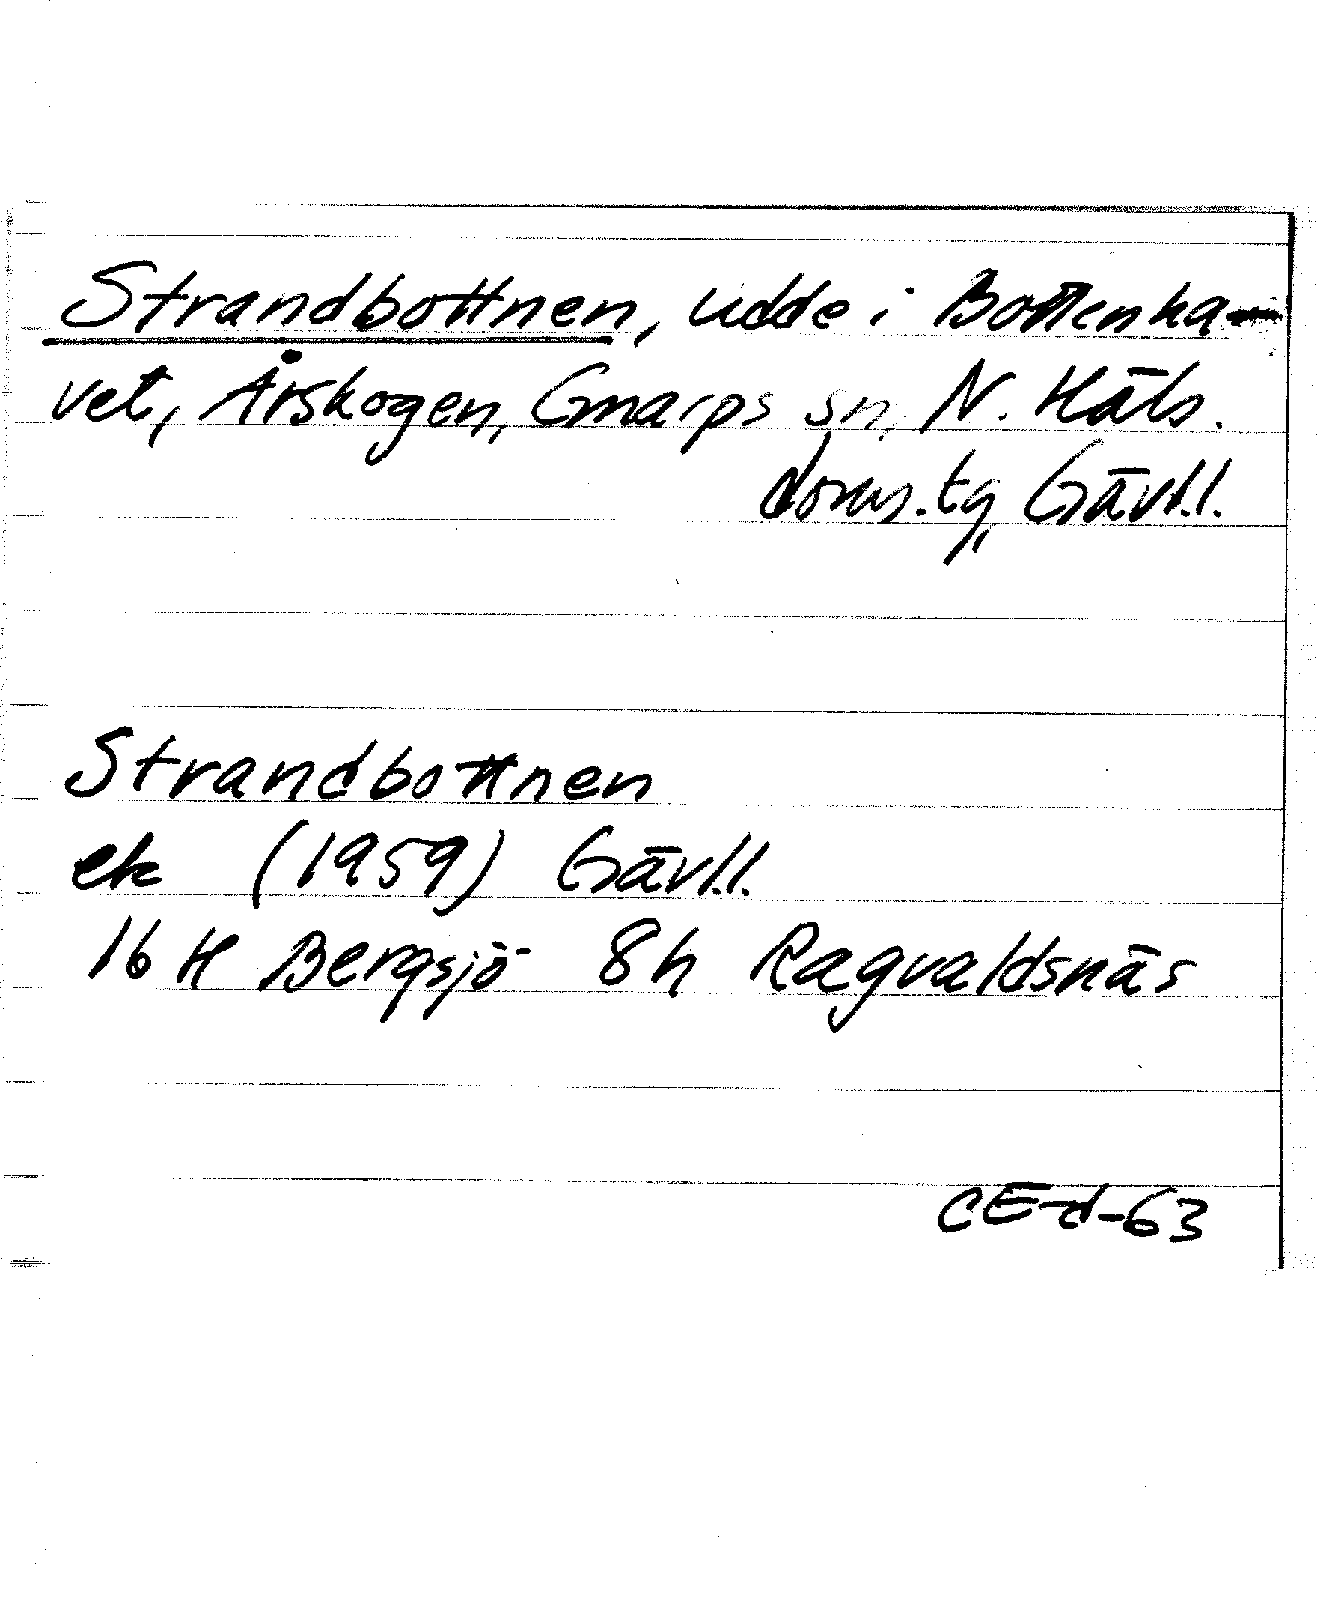 Strandbottnen, udde i Bottenha-
vet, Årskogen, Gnarps sn, N. Häls.
doms.tg, Gävl.l.
Strandbottnen
ek (1959) Gävl.l.
16 H Bergsjö 8h Ragvaldsnäs
CE-d-63